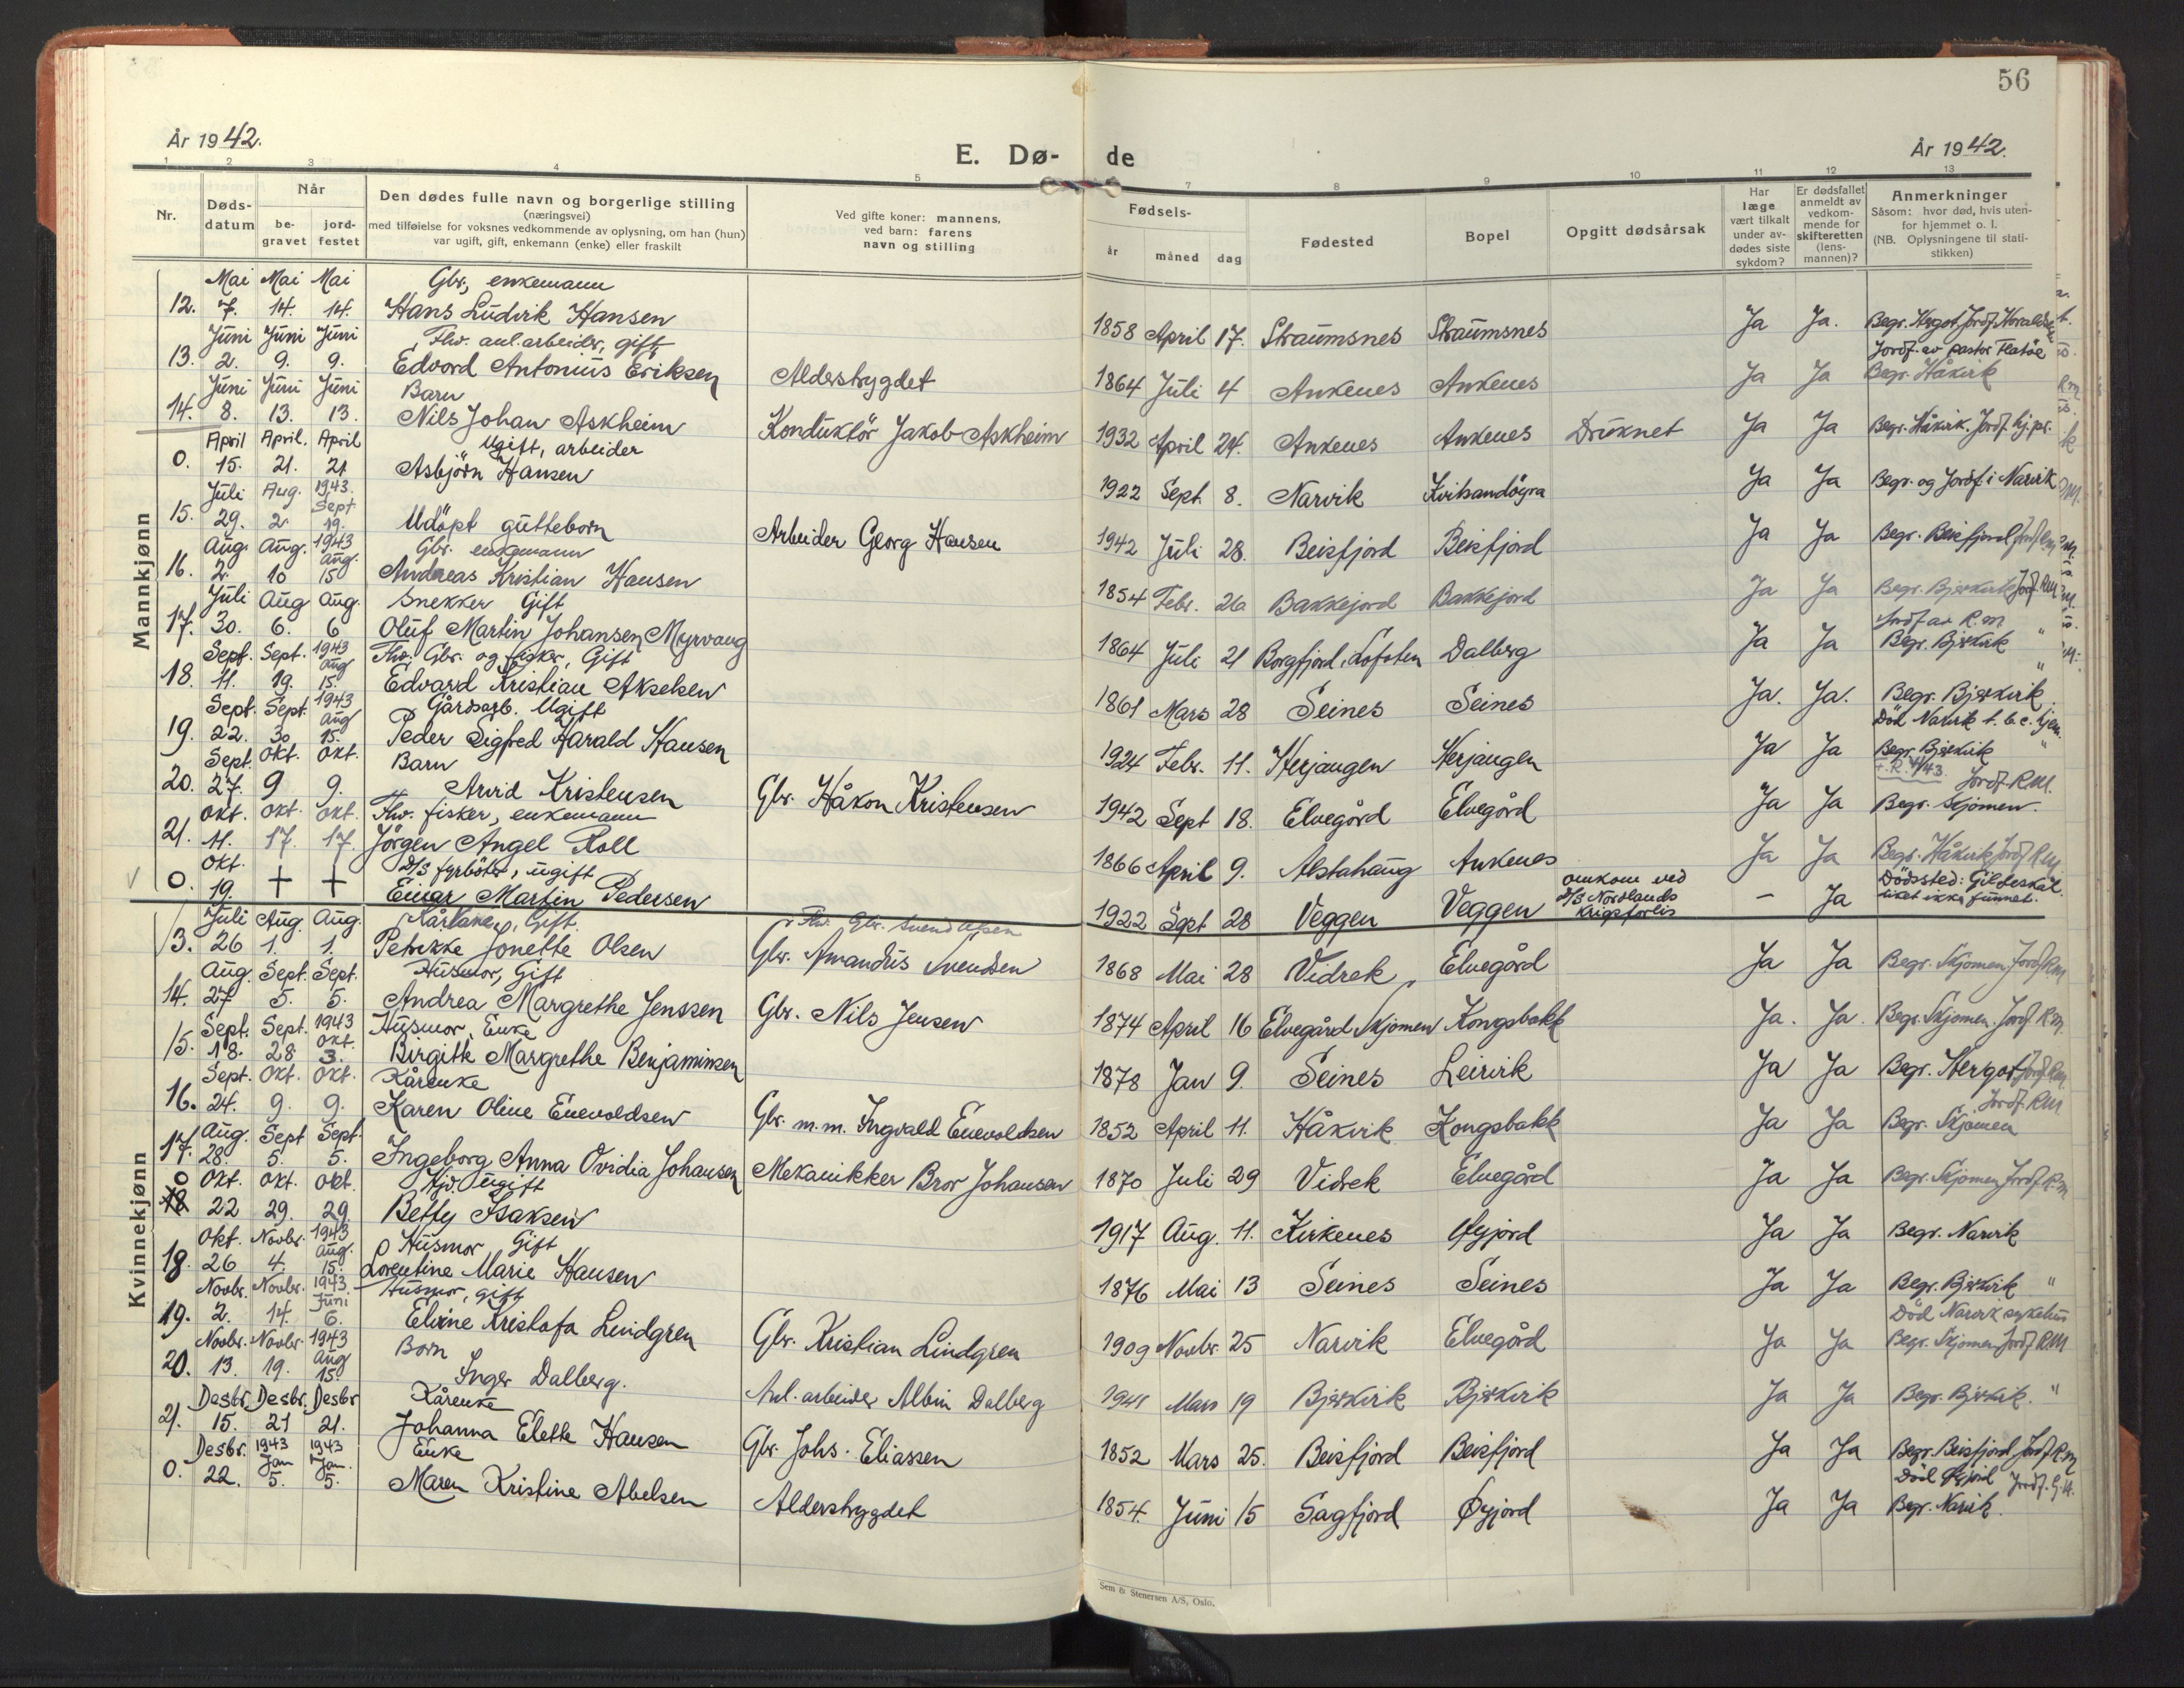 56
År 1942.
E. Dø- de
År 1942.
1 2 3 4 5 7 8 9 10 11 12 13
Nr.
Døds-
datum
Når
be-
gravet
jord-
festet
Den dødes fulle navn og borgerlige stilling
(næringsvei)
med tilføielse for voksnes vedkommende av oplysning, om han (hun)
var ugift, gift, enkemann (enke) eller fraskilt
Ved gifte koner: mannens,
ved barn: farens
navn og stilling
Fødsels-
år måned dag
Fødested
Bopel
Opgitt dødsårsak
Har
læge
vært tilkalt
under av-
dødes siste
sykdom?
Er dødsfallet
anmeldt av
vedkom-
mende for
skifteretten
(lens-
mannen)?
Anmerkninger
Såsom: hvor død, hvis uten-
for hjemmet o. l.
(NB. Oplysningene til stati-
stikken)
Mannkjønn
Mai Mai Mai Gbr, enkemann
12. 7. 14. 14. Hans Ludvik Hansen 1858 April 17. Straumsnes Straumsnes Ja Ja. Begr. Hergot Jordf.
Juni Juni Juni Fhv. anl.arbeider, gift Jordf. av pastor Flatöe
13. 2. 9. 9. Edvard Antonius Eriksen Alderstrygdet 1864 Juli 4 Ankenes Ankenes Ja Ja Begr. Håkvik
Juni Juni Juni Barn
14. 8. 13. 13. Nils Johan Askheim Konduktör Jakob Askheim 1932 April 24. Ankenes Ankenes Druknet Ja Ja Begr. Håkvik. Jordf. hj.pr.
April April. April Ugift, arbeider
0. 15. 21. 21 Asbjörn Hansen 1922 Sept. 8. Narvik Kvitsandöyra Ja Ja Begr. og Jordf. i Narvik
Juli Aug. 1943. Sept
15. 29. 2. 19. Udöpt gutteborn Arbeider Georg Hansen 1942 Juli 28. Beisfjord Beisfjord Ja Ja Begr. Beisfjord Jordf. RM
Aug. Aug. 1943 Aug. Gbr. enkemann
16. 2. 10 15 Andreas Kristian Hansen 1854 Febr. 26 Bakkejord Bakkejord Ja Ja Begr. Bjerkvik Jordf. RM
Juli Aug Aug. Snekker Gift Jordf av R.M
17. 30. 6. 6 Oluf Martin Johansen Myrvang 1864 Juli 21 Borgfjord, Lofoten Dalberg Ja Ja Begr. Bjerkvik "
Sept. Sept. 1943 Aug Fhv. Gbr. og fisker, Gift
18. 11. 19. 15. Edvard Kristian Akselsen 1861 Mars 28 Seines Seines Ja. Ja. Begr. Bjerkvik "
Sept. Sept. 1943 Aug Gårdsarb. Ugift Död Narvik t.b.c. hjem.
19. 22. 30 15. Peder Sigfred Harald Hansen 1924 Febr. 11. Herjangen Herjangen Ja Ja Begr. Bjerkvik "
Sept. Okt. Okt. Barn Jordf. RM.
20. 27. 9 9. Arvid Kristensen Gbr. Håkon Kristensen 1942 Sept 18. Elvegård Elvegård Ja Ja Begr. Skjomen.
Okt. Okt. Okt. Fhv. fisker, enkemann
21. 11. 17. 17. Jörgen Angel Roll 1866 April 9. Alstahaug Ankenes Ja Ja Begr. Håkvik Jordf RM
Okt. D/S fyrböter, ugift omkom ved Dödssted: Gildeskål.
0. 19. + + Einar Martin Pedersen 1922 Sept 28 Veggen Veggen D/S Nordlands krigsforlis – Ja liket ikke funnet.
Kvinnekjønn
Juli Aug. Aug. Kårkone, Gift. Fhv. Gbr.
13. 26 1. 1. Petrikke Jonette Olsen Gbr. Amandus Svendsen 1868 Mai 28 Vidrek Elvegård Ja Ja Begr. Skjomen Jordf RM
Aug. Sept. Sept. Husmor, Gift
14. 27 5. 5. Andrea Margrethe Jenssen Gbr. Nils Jensen 1874 April 16 Elvegård Skjomen Kongsbakk Ja. Ja. Begr. Skjomen. Jordf RM.
Sept. Sept. 1943 Okt. Husmor, Enke
15. 18. 28 3. Birgitte Margrethe Benjaminsen 1878 Jan 9. Seines Leirvik Ja Ja Begr. Hergot Jordf RM.
Sept. Okt. Okt. Kårenke Jordf. RM
16. 24. 9. 9. Karen Oline Enevoldsen Gbr. m.m. Ingvald Enevoldsen 1852 April 11. Håkvik Kongsbakk Ja Ja Begr. Skjomen
Aug. Sept Sept.
17. 28. 5. 5. Ingeborg Anna Ovidia Johansen Mekanikker Bror Johansen 1870 Juli 29 Vidrek Elvegård Ja Ja Begr. Skjomen Jordf. RM
0 Okt. Okt. Okt. Hjv. Ugift
18 22 29. 29. Betty Isaksen 1917 Aug. 11. Kirkenes Øyjord Ja Ja Begr. Narvik
Okt. Novbr. 1943 Aug. Husmor Gift
18. 26 4. 15. Lorentine Marie Hansen 1876 Mai 13 Seines Seines Ja Ja Begr. Bjerkvik "
Novbr. Novbr. 1943. Juni Husmor, gift Död Narvik sykehus
19. 2. 14. 6. Elvine Kristofa Lindgren Gbr. Kristian Lindgren 1909 Novbr. 25 Narvik Elvegård Ja Ja Begr. Skjomen Jordf RM
Novbr. Novbr. 1943 Aug Born
20. 13. 19. 15 Inger Dalberg. Anl. arbeider Albin Dalberg 1941 Mars 19 Bjerkvik Bjerkvik Ja Ja Begr. Bjerkvik. "
Desbr. Desbr. Desbr Kårenke
21. 15. 21 21. Johanna Elette Hansen Gbr. Johs. Eliassen 1852 Mars 25. Beisfjord Beisfjord Ja Ja Begr. Beisfjord Jordf. RM
Desbr. 1943 Jan 1943 Jan. Enke Död Øyjord Jordf. G.H.
0. 22. 5. 5. Maren Kristine Abelsen Alderstrygdet 1854. Juni 15 Sagfjord Øyjord Ja Ja Begr. Narvik.
Sem & Stenersen A/S, Oslo.